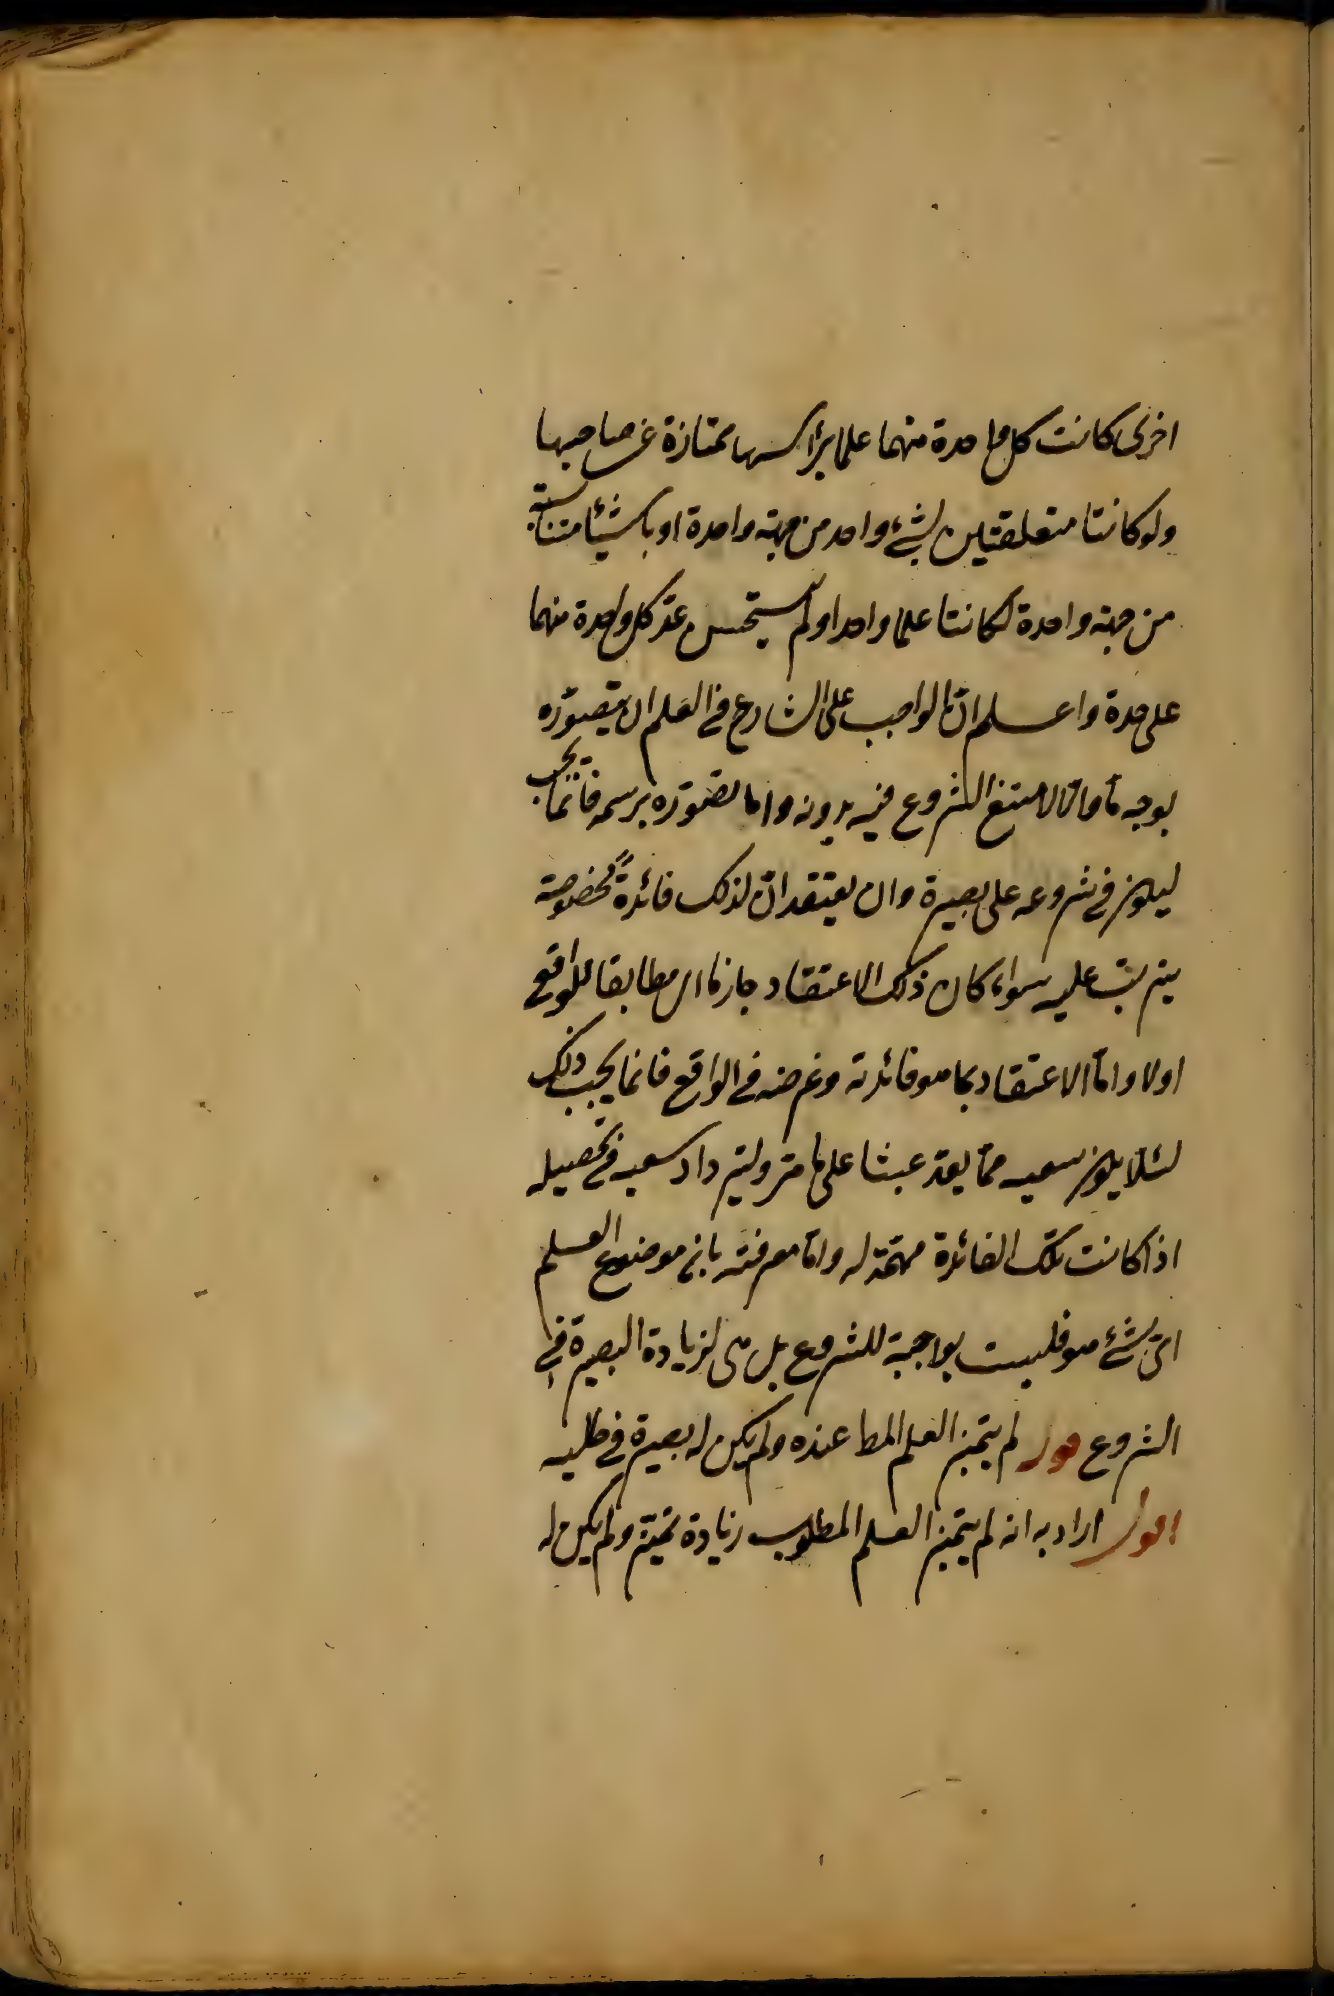 اخرى كانت كل واحدة منهما علما برأسها ممتازة عن صاحبها
ولو كانتا متعلقتين بشئ واحد من جهة واحدة او باشياء متناسبة
من جهة واحدة لكانتا علما واحدا ولم يستحسن عد كل واحدة منهما
على حدة واعلم ان الواجب على الشارع في العلم ان يتصوره
بوجه ما والا لامتنع الشروع فيه بدونه واما تصوره برسمه فانما يجب
ليكون في شروعه على بصيرة وان يعتقد ان لذلك فائدةً مخصوصة
يترتب عليه سواء كان ذلك الاعتقاد جازما او مطابقا للواقع
اولا واما الاعتقاد بما هو فائدته وغرضه في الواقع فانما يجب ذلك
لئلا يكون سعيه مما يعد عبثا على ما مر وليزداد سعيه في تحصيله
اذا كانت تلك الفائدة مهمة له واما معرفته بان موضوع العلم
اى شئ هو فليست بواجبة للشروع بل هى لزيادة البصيرة في
الشروع قوله لم يتميز العلم المط عنده ولم يكن له بصيرة في طلبه
اقول اراد به انه لم يتميز العلم المطلوب زيادة تميّز ولم يكن له